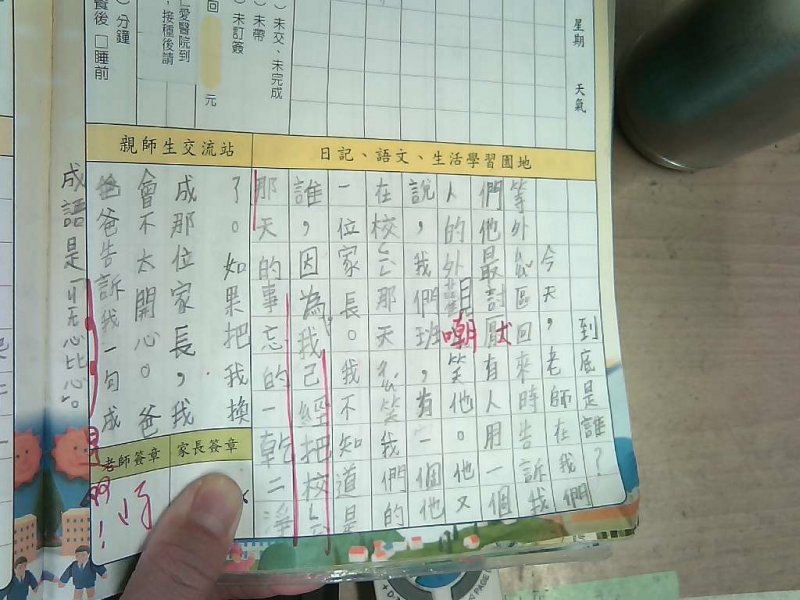 星期
天氣
)未交、未完成
)未帶
)未訂簽
回
元
愛醫院到
,接種後請
)分鐘
餐後 □睡前
日記、語文、生活學習園地
親師生交流站
到底是誰?
今天,老師在我們
等外區回來時告訴我
們他最討厭有人用一個
人的外貌嘲笑他。他又
說,我們班,有一個他
在校那天笑我們的
一位家長。我不知道是
誰,因為我已經把校
那天的事忘的一乾二淨
了。如果把我換
成那位家長,我
會不太開心。爸
爸告訴我一句成
成語是「心比心」。
嘲
家長簽章
老師簽章
是啊!